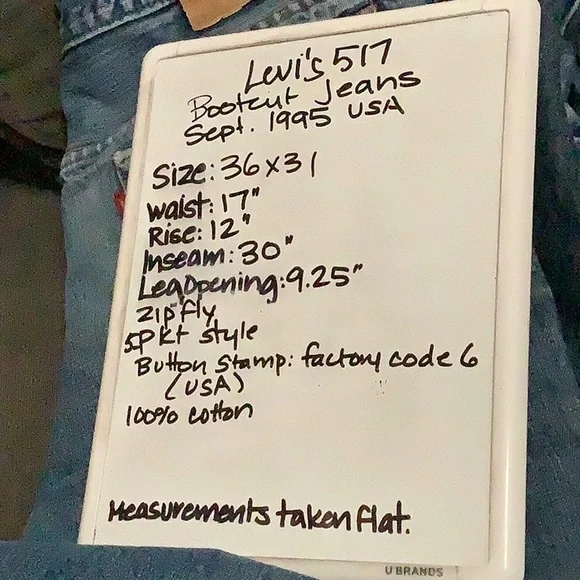 Levi's 517
Bootcut Jeans
Sept. 1995 USA
Size: 36x31
waist: 17"
Rise: 12"
Inseam: 30"
Leg Opening: 9.25"
zip fly
5pkt style
Button Stamp: factory code 6
(USA)
100% cotton
Measurements taken flat.
U BRANDS